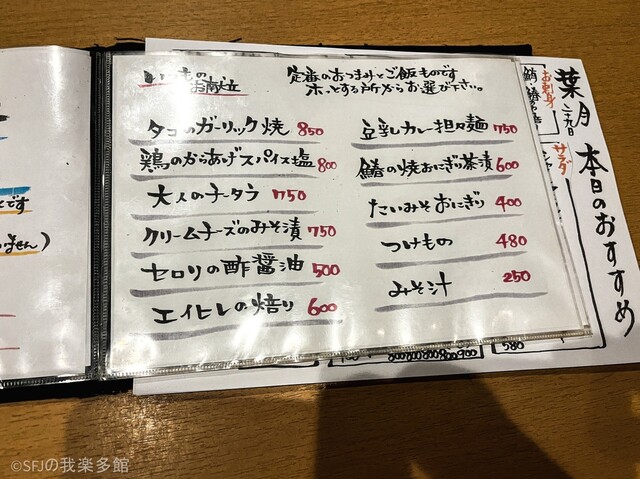 いつものお献立
定番のおつまみとご飯ものです
ホッとする所からお選び下さい。
タコのガーリック焼 850
鶏のからあげスパイス塩 800
大人のチータラ 750
クリームチーズのみそ漬 750
セロリの酢醤油 500
エイヒレの焙り 600
豆乳カレー担々麺 750
鰆の焼おにぎり茶漬 600
たいみそおにぎり 400
つけもの 480
みそ汁 250
葉月 二十九日
本日のおすすめ
お刺身
サラダ
580
です
ません)
©SFJの我楽多館